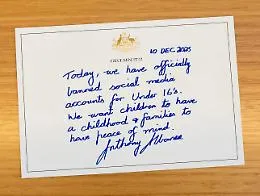 10 DEC 2025
Today, we have officially
banned social media
accounts for Under 16's.
We want children to have
a childhood & families to
have peace of mind.
Anthony Albanese